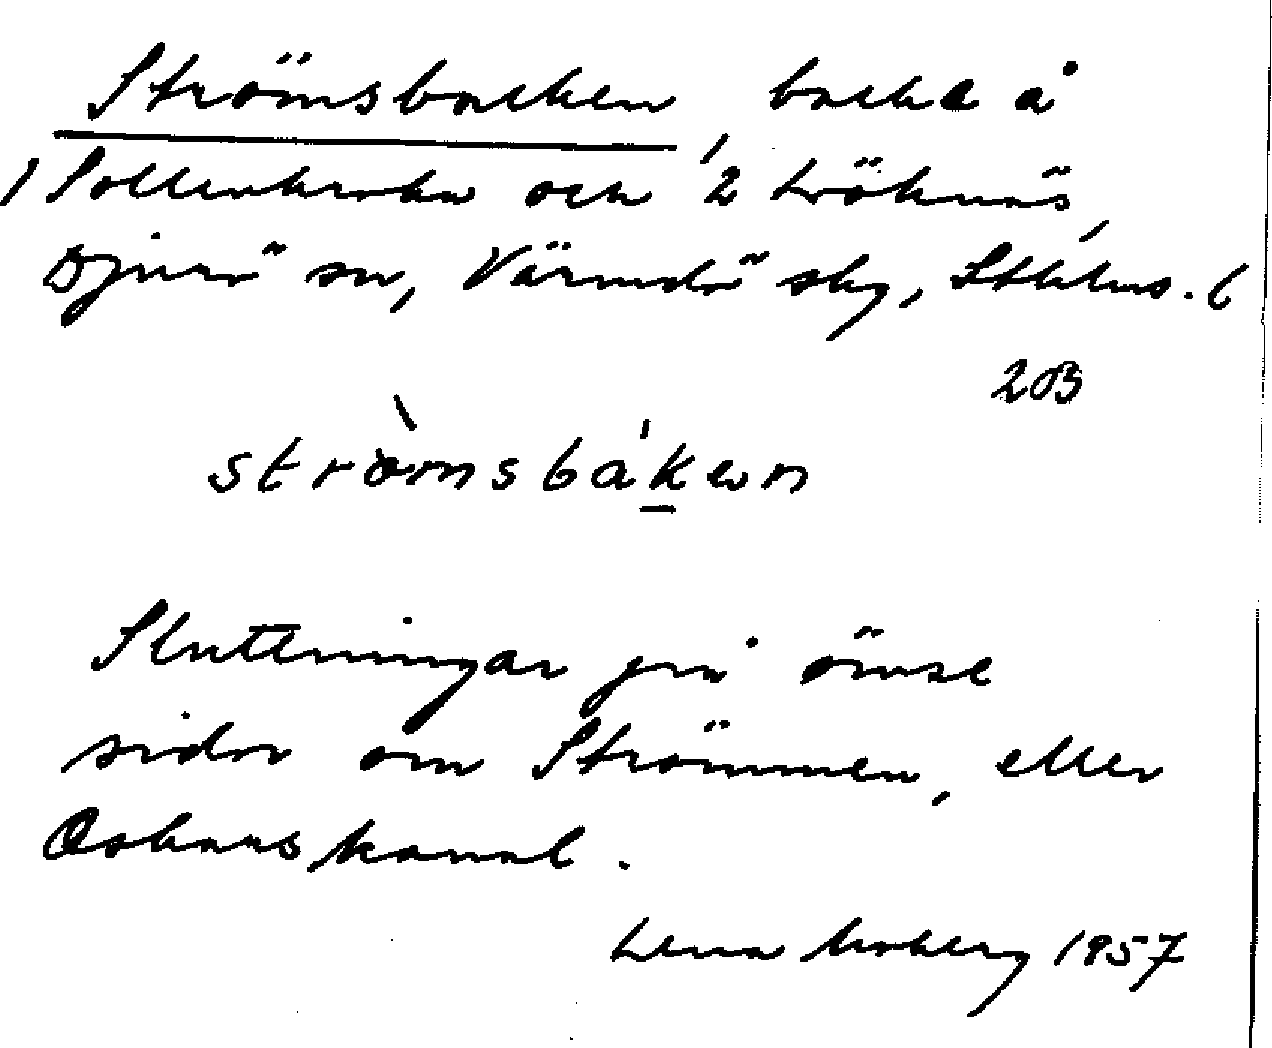 Strömsbacken, backe å
1 Sollenkroka och 2 Löknäs,
Djurö sn, Värmdö skg, Sthlms. l
2B
strömsbàkɘn
Sluttningar på ömse
sidor om Strömmen, eller
Oskarskanal.
Lena Moberg 1957